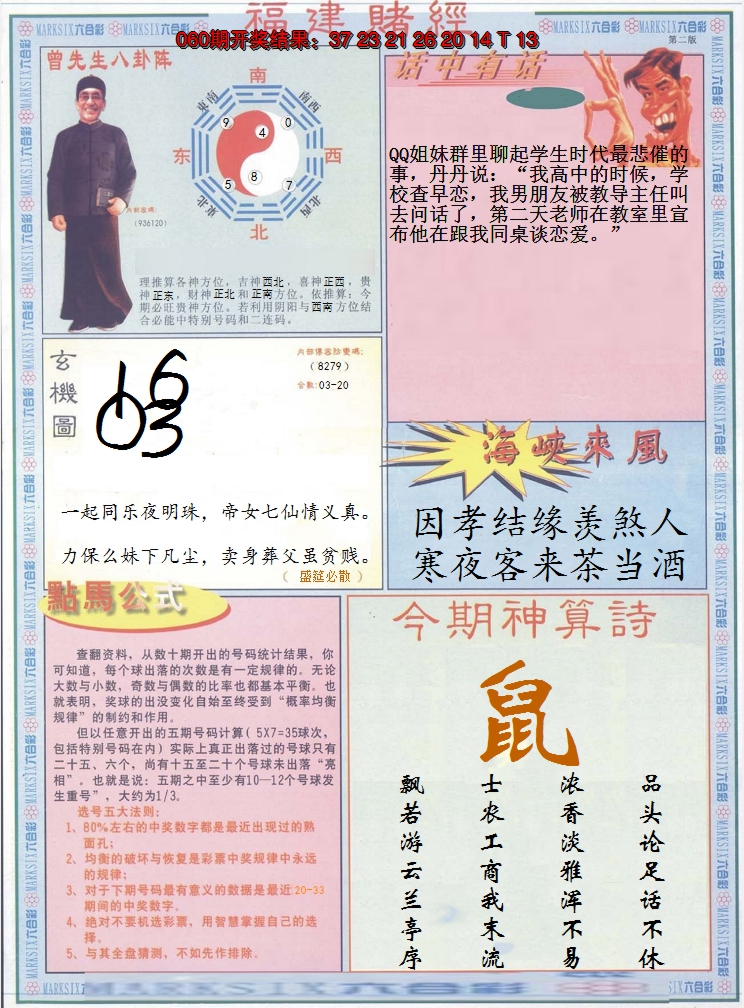 福建賭經
060期开奖结果：37 23 21 26 20 14 T 13
第二版
MARKSIX六合彩
曾先生八卦阵
南
东南
南西
9
4
0
东
西
5
8
7
东北
北西
北
内部密碼:
（936120）
理推算各神方位，吉神西北，喜神正西，贵
神正东，财神正北和正南方位。依推算：今
期必旺贵神方位。若利用阴阳与西南方位结
合必能中特别号码和二连码。
话中有话
QQ姐妹群里聊起学生时代最悲催的
事，丹丹说：“我高中的时候，学
校查早恋，我男朋友被教导主任叫
去问话了，第二天老师在教室里宣
布他在跟我同桌谈恋爱。”
玄機圖
（8279）
合数:03-20
一起同乐夜明珠，帝女七仙情义真。
力保么妹下凡尘，卖身葬父虽贫贱。
（ 盛筵必散 ）
海峽來風
因孝结缘羡煞人
寒夜客来茶当酒
點馬公式
查翻资料，从数十期开出的号码统计结果，你
可知道，每个球出落的次数是有一定规律的。无论
大数与小数，奇数与偶数的比率也都基本平衡。也
就表明，奖球的出没变化自始至终受到“概率均衡
规律”的制约和作用。
但以任意开出的五期号码计算（5X7=35球次，
包括特别号码在内）实际上真正出落过的号球只有
二十五、六个，尚有十五至二十个号球未出落“亮
相”。也就是说：五期之中至少有10—12个号球发
生重号”，大约为1/3。
选号五大法则：
1、80%左右的中奖数字都是最近出现过的熟
面孔；
2、均衡的破坏与恢复是彩票中奖规律中永远
的规律；
3、对于下期号码最有意义的数据是最近20-33
期间的中奖数字。
4、绝对不要机选彩票，用智慧掌握自己的选
择。
5、与其全盘猜测，不如先作排除。
今期神算詩
鼠
飘若游云兰亭序
士农工商我末流
浓香淡雅浑不易
品头论足话不休